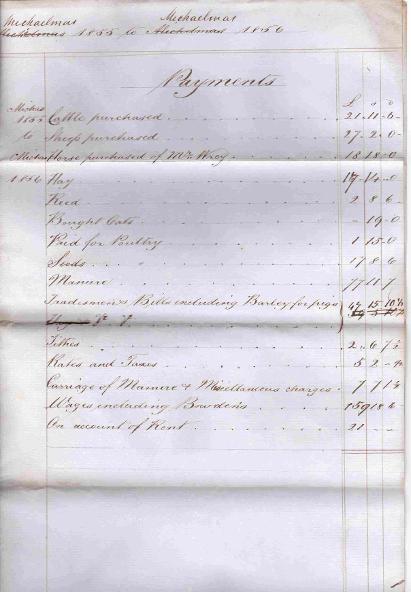 Michaelmas Michaelmas
Michaelmas 1855 to Michaelmas 1856
Payments
£ s d
Michms
1855 Cattle purchased 21-11-6-
to Sheep purchased 27-2-0-
Michms Horse purchased of Mr 18 18-0
1856 Hay 17-14-0
Reed 2 8 6-
Bought Oats - 19-0
Paid for Poultry 1 15-0
Seeds " 17 8 6
Manure 77 11 7
Tradesmen's Bills including Barley for pigs 15 10½
Tithes 2-6 7½
Rates and Taxes 5 2-
Carriage of Manure & Miscellaneous charges 7 7 1½
Wages including Bowden's 159 18 6-
On account of Rent 21 - -